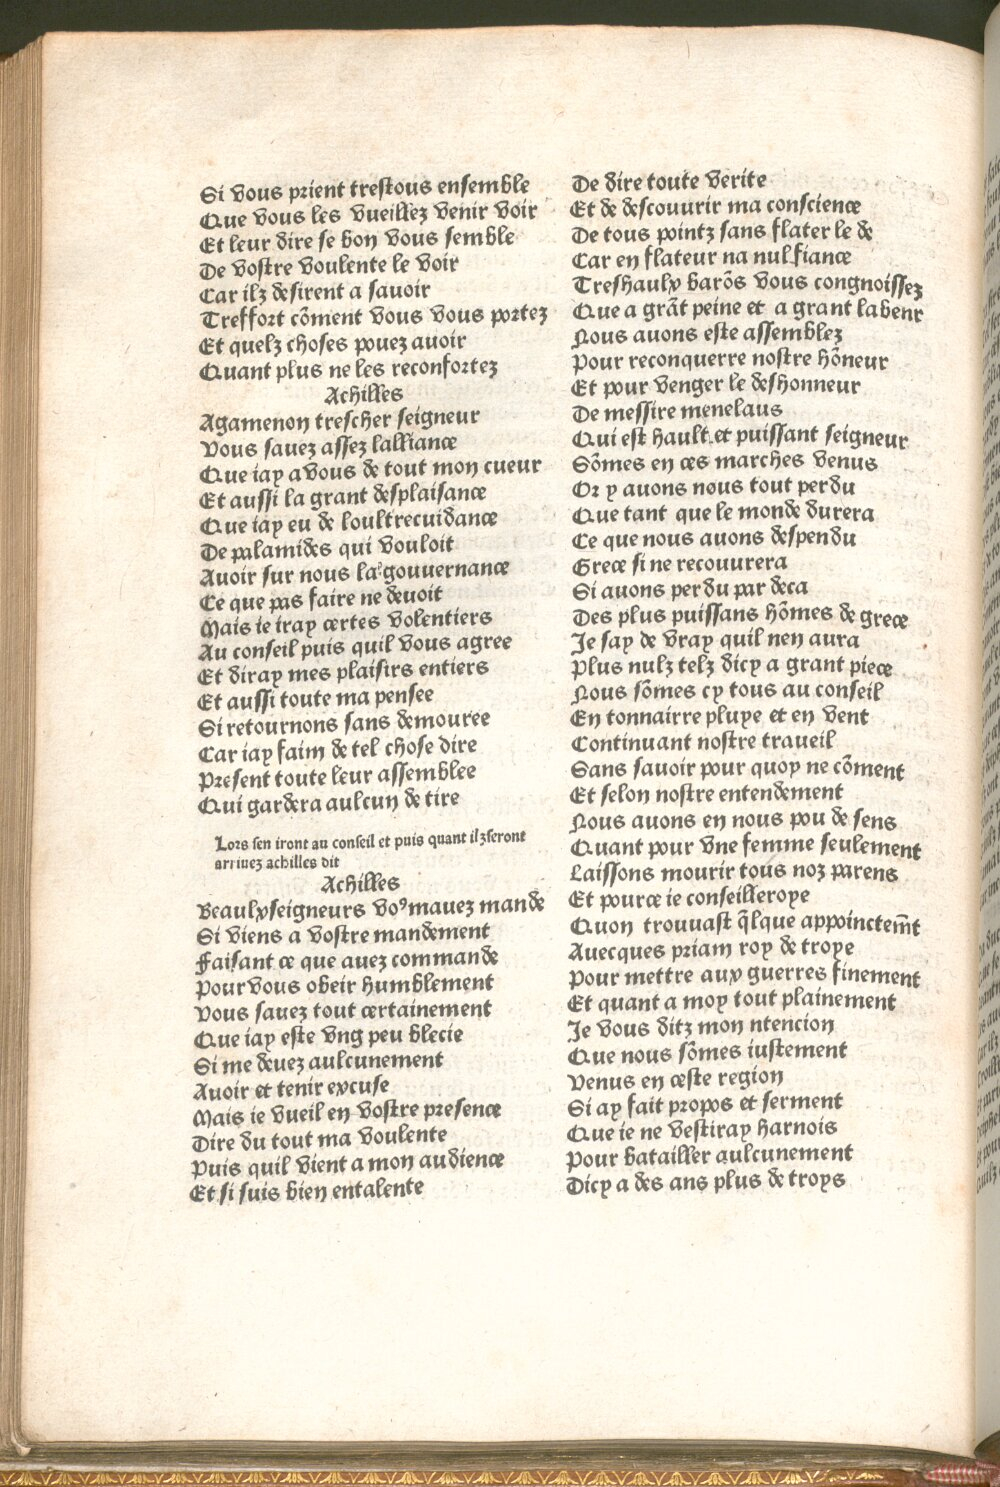 Si vous prient trestous ensemble
Que vous les vueillez venir voir
Et leur dire se bon vous semble
De vostre voulente le voir
Car ilz desirent a savoir
Treffort cõment vous vous portez
Et quelz choses pouez avoir
Quant plus ne les reconfortez
Achilles
Agamenon trescher seigneur
Vous savez assez lalliance
Que iay a vous de tout mon cueur
Et aussi la grant desplaisance
Que iay eu de loultrecuidance
De palamides qui vouloit
Avoir sur nous la gouvernance
Ce que pas faire ne devoit
Mais ie iray certes volentiers
Au conseil puis quil vous agree
Et diray mes plaisirs entiers
Et aussi toute ma pensee
Si retournons sans demouree
Car iay faim de tel chose dire
Present toute leur assemblee
Qui gardera aulcun de tire
Lors sen iront au conseil et puis quant ilz seront
arrivez achilles dit
Achilles
Beaulx seigneurs voꝰ mavez mande
Si viens a vostre mandement
Faisant ce que avez commande
Pour vous obeir humblement
Vous savez tout certainement
Que iay este vng peu blecie
Si me devez aulcunement
Avoir et tenir excuse
Mais ie vueil en vostre presence
Dire du tout ma voulente
Puis quil vient a mon audience
Et si suis bien entalente
De dire toute verite
Et de descouurir ma conscience
De tous pointz sans flater le de
Car en flateur na nul fiance
Treshaulx barõs vous congnoissez
Que a grãt peine et a grant labenr
Nous auons este assemblez
Pour reconquerre nostre hõneur
Et pour venger le deshonneur
De messire menelaus
Qui est hault et puissant seigneur
Sõmes en ces marches venus
Or y auons nous tout perdu
Que tant que le monde durera
Ce que nous auons despendu
Grece si ne recouurera
Si auons perdu par deca
Des plus puissans hõmes de grece
Je say de vray quil nen aura
Plus nulz telz dicy a grant piece
Nous sõmes cy tous au conseil
En tonnairre pluye et en vent
Continuant nostre traueil
Sans savoir pour quoy ne cõment
Et selon nostre entendement
Nous auons en nous pou de sens
Quant pour vne femme seulement
Laissons mourir tous noz parens
Et pource ie conseilleroye
Quon trouvast q̃lque appoinctem̃t
Avecques priam roy de troye
Pour mettre aux guerres finement
Et quant a moy tout plainement
Je vous ditz mon ntencion
Que nous sõmes iustement
Venus en ceste region
Si ay fait propos et serment
Que ie ne vestiray harnois
Pour batailler aulcunement
Dicy a des ans plus de troys